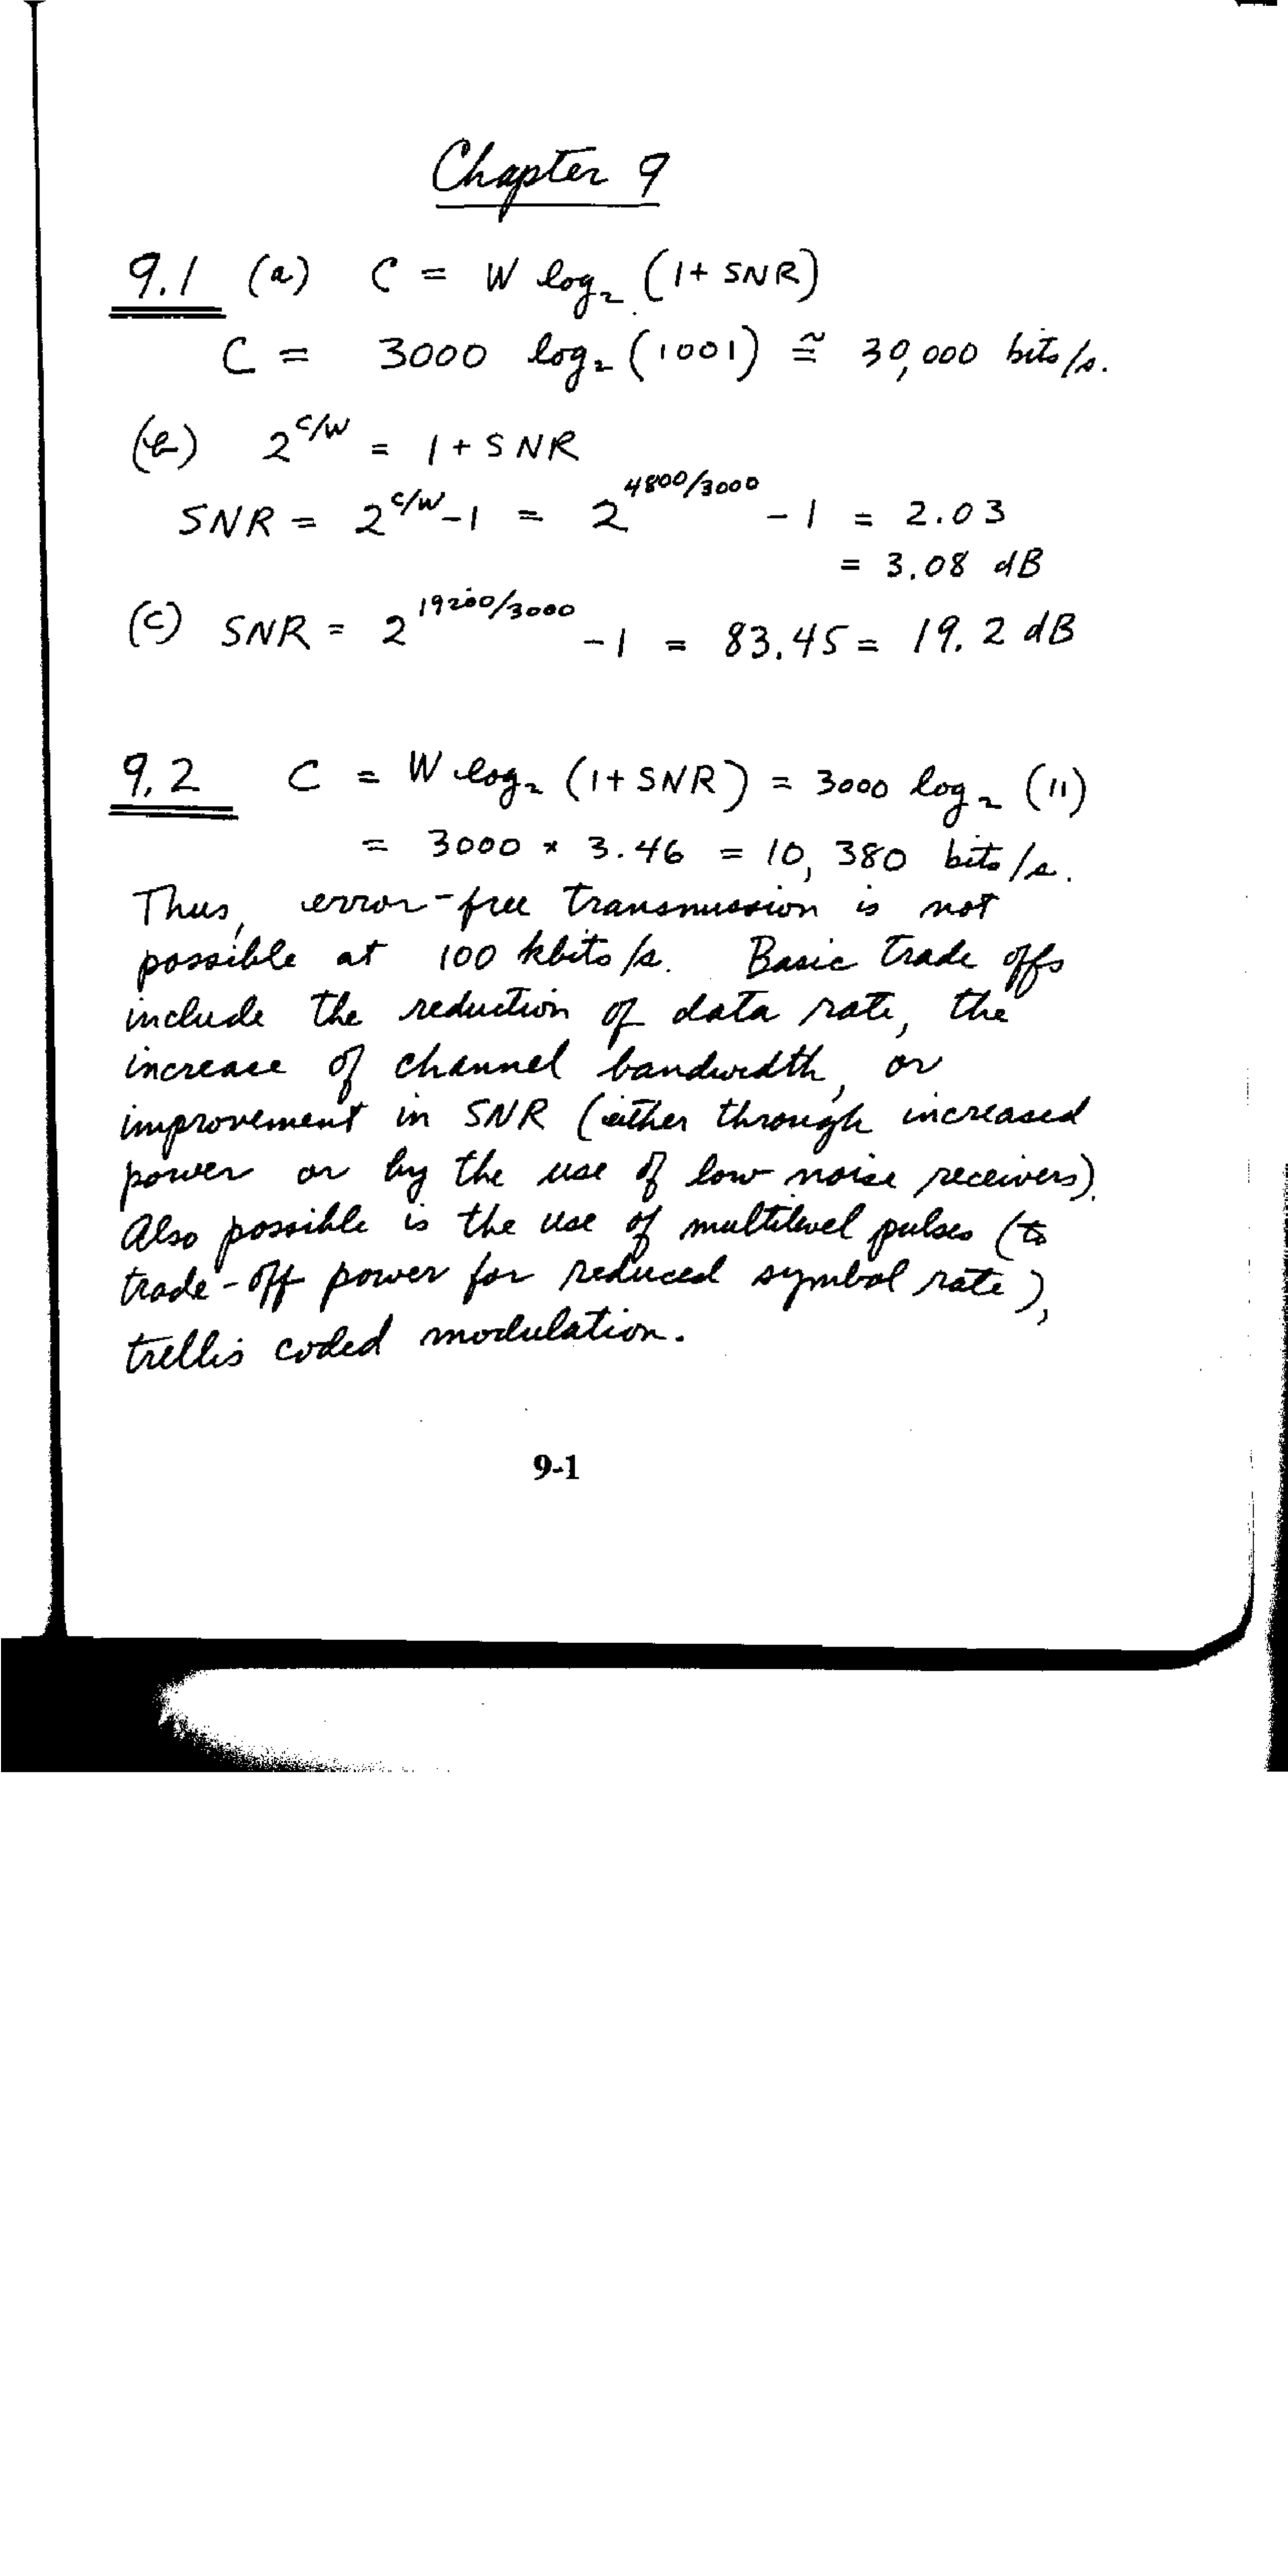 Chapter 9
9.1 (a) C = W log₂ (1 + SNR)
C = 3000 log₂ (1001) ≅ 30,000 bits/s.
(b) 2^{C/W} = 1 + SNR
SNR = 2^{C/W} - 1 = 2^{4800/3000} - 1 = 2.03
= 3.08 dB
(c) SNR = 2^{19200/3000} - 1 = 83.45 = 19.2 dB
9.2 C = W log₂ (1 + SNR) = 3000 log₂ (11)
= 3000 × 3.46 = 10,380 bits/s.
Thus, error-free transmission is not
possible at 100 kbits/s. Basic trade offs
include the reduction of data rate, the
increase of channel bandwidth, or
improvement in SNR (either through increased
power or by the use of low noise receivers).
Also possible is the use of multilevel pulses (to
trade-off power for reduced symbol rate),
trellis coded modulation.
9-1